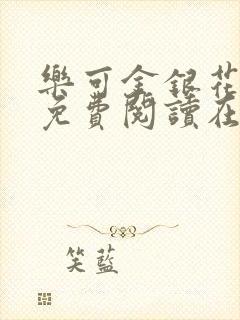 樂可金銀花
免費閱讀在
笑藍